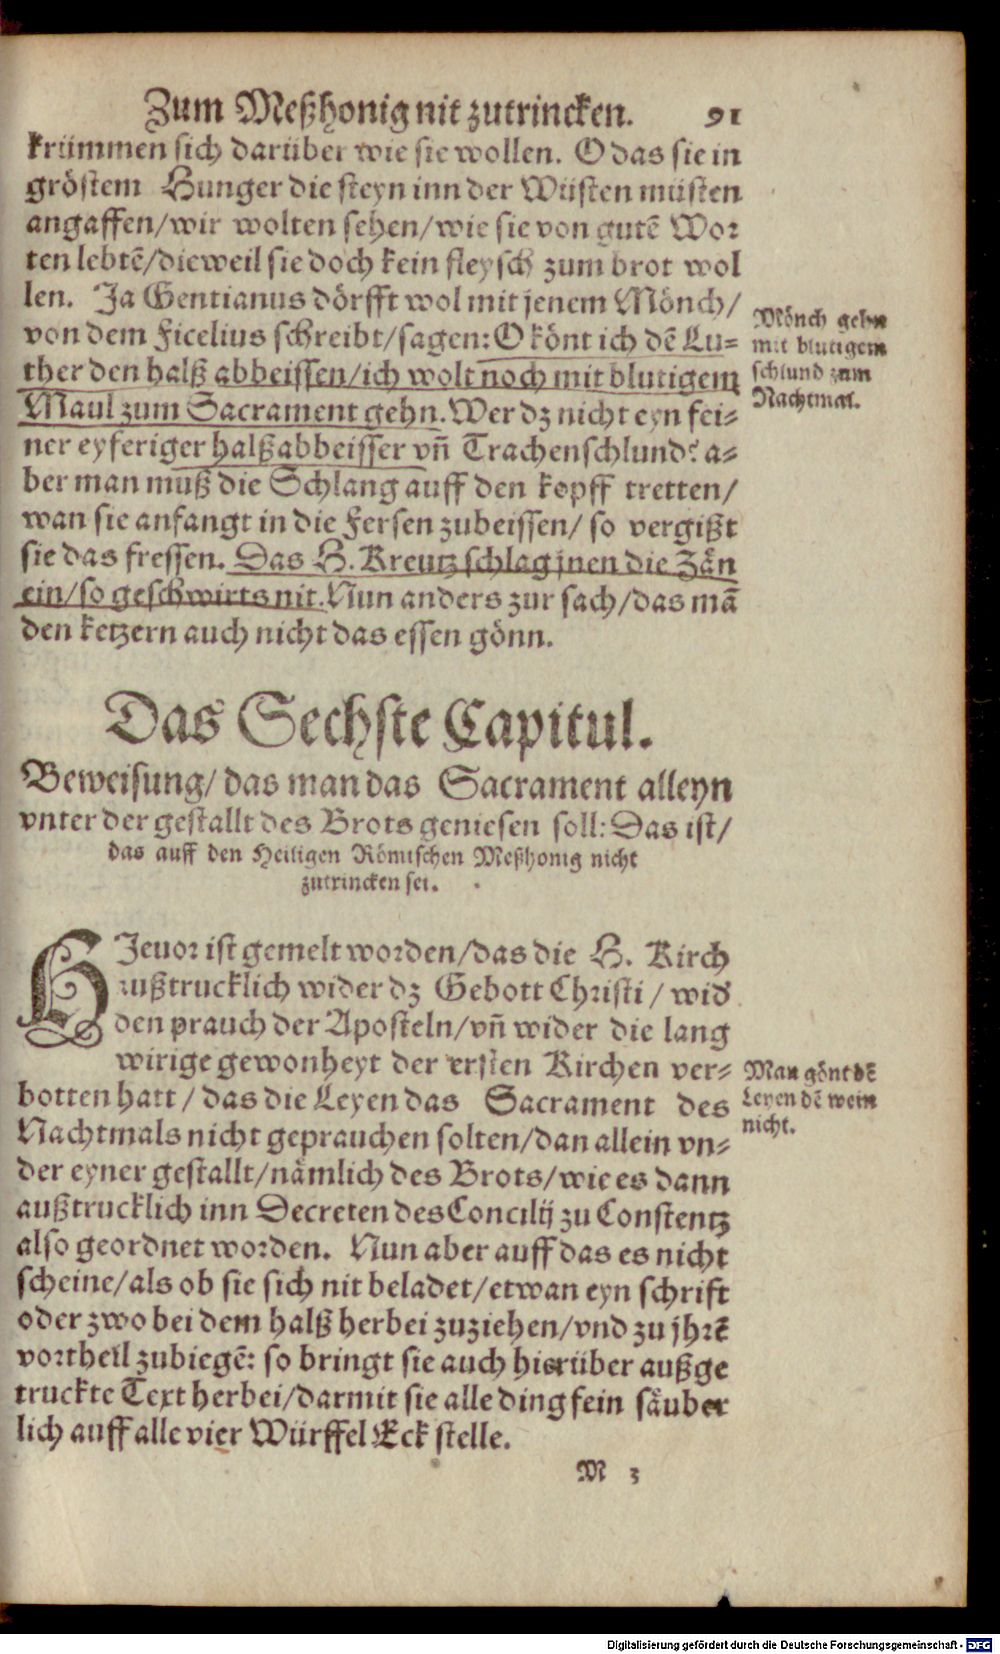 Zum Meßhonig nit zutrincken. 91
krümmen sich darüber wie sie wollen. O das sie in
gröstem Hunger die steyn inn der Wüsten müsten
angaffen/wir wolten sehen/wie sie von gutē Wor
ten lebtē/dieweil sie doch kein fleysch zum brot wol
len. Ja Gentianus dörfft wol mit jenem Mönch/
von dem Ficelius schreibt/sagen: O könt ich dē Lu-
ther den halß abbeissen/ich wolt noch mit blutigem
Maul zum Sacrament gehn. Wer dz nicht eyn fei-
ner eyferiger halßabbeisser vn̄ Trachenschlund? a-
ber man muß die Schlang auff den kopff tretten/
wan sie anfangt in die Fersen zubeissen/ so vergißt
sie das fressen. Das H. Kreutz schlag jnen die Zän
ein/so geschwirts nit. Nun anders zur sach/das mā
den ketzern auch nicht das essen gönn.
Mönch gehn
mit blutigem
schlund zum
Nachtmal.
Das Sechste Capitul.
Beweisung/ das man das Sacrament alleyn
vnter der gestallt des Brots geniesen soll: Das ist/
das auff den Heiligen Römischen Meßhonig nicht
zutrincken sei.
HJeuor ist gemelt worden/das die H. Kirch
außtrucklich wider dz Gebott Christi / wid
den prauch der Aposteln/vn̄ wider die lang
wirige gewonheyt der ersten Kirchen ver-
botten hatt / das die Leyen das Sacrament des
Nachtmals nicht geprauchen solten/dan allein vn-
der eyner gestallt/nämlich des Brots/wie es dann
außtrucklich inn Decreten des Concilij zu Constentz
also geordnet worden. Nun aber auff das es nicht
scheine/als ob sie sich nit beladet/etwan eyn schrift
oder zwo bei dem halß herbei zuziehen/vnd zu jhrē
vortheil zubiegē: so bringt sie auch hierüber außge
truckte Text herbei/darmit sie alle ding fein säuber
lich auff alle vier Würffel Eck stelle.
Man gönt dē
Leyen dē wein
nicht.
M 3
Digitalisierung gefördert durch die Deutsche Forschungsgemeinschaft - DFG